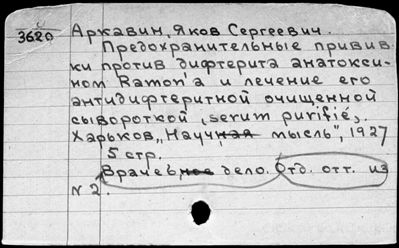 3620 Аркавин, Яков Сергеевич.
Предохранительные привив
ки против дифтерита анатокси-
ном Ramon'a и лечение его
антидифтеритной очищенной
сывороткой, serum purifié,.
Харьков, "Научная мысль", 1927
5 стр.
Врачебное дело. Отд. отт. из
N 2.